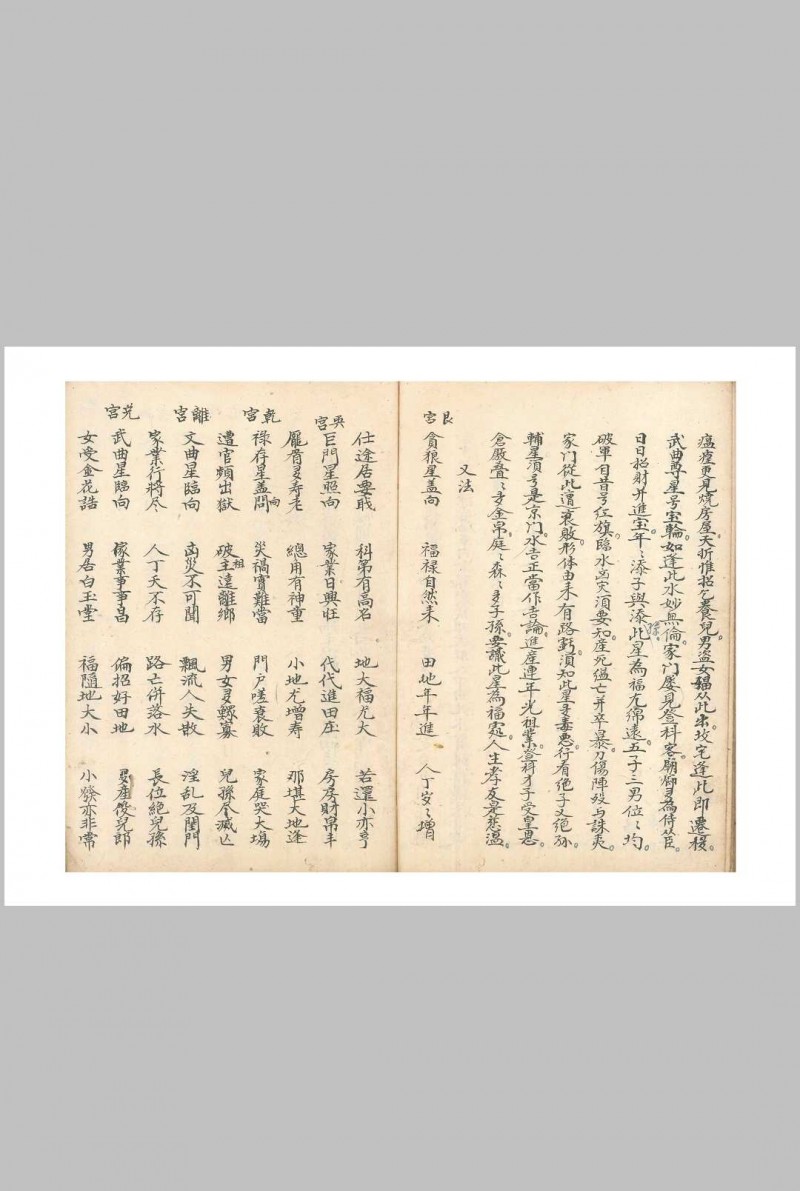 瘟瘦更見燒房屋夭折惟招乞養兒男盜女娼从此出坟宅逢此即遷移
武曲尊星号宝輪如逢此水妙無倫家门屡見登科客廟䘚身為侍从臣
日日招財并進宝年々添子與添此星為福尤綿遠五子三男位々均
破軍自昔号红旗臨水凶灾須要知産死瘟亡并卒暴刀傷陣殁与誅夷
家门從此遭衰敗形体由来有路虧須知此星多毒恶行有绝子又绝孙
輔星須号是京门水吉正當作吉論進産連年光祖業登科才子受皇恩
倉厫叠々多金帛庭々森々多子孫要識此星為福䆮人生孝友是慈温
又法
艮宫
貪狼星盖向 福禄自然来 田地年年進 人丁岁々增
仕途居要戢 科第有高名 地大福尤大 若還小亦亨
巽宫
巨門星照向 家業日興旺 代代進田庄 房房財帛丰
龐眉多寿老 總角有神童 小地尤增寿 那堪大地逢
乾宫
禄存星盖問向 災禍實難當 門户嗟衰敗 家庭哭大塲
遭官頻出獄 破主祖遠離鄉 男女多鰥寡 兒孫尽滅亡
離宫
文曲星臨向 凶災不可聞 飄流人失散 淫乱及閨門
家業行將尽 人丁夭不存 路亡併落水 長位絕兒孫
兑宫
武曲星臨向 傢業事事昌 偏招好田地 多産俊兒郎
女受金花誥 男居白玉堂 福隨地大小 小發亦非常